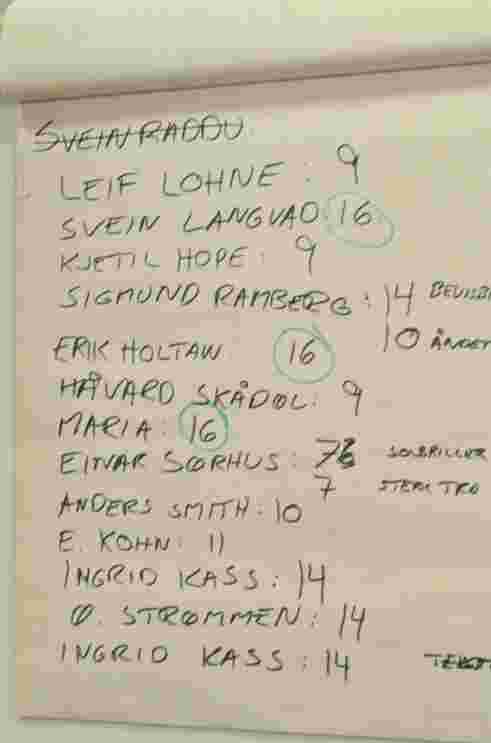 SVEIN RADDU
LEIF LOHNE : 9
SVEIN LANGVAD: 16
KJETIL HOPE : 9
SIGMUND RAMBERG : 14
10
ERIK HOLTAN 16
HÅVARD SKÅDØL: 9
MARIA: 16
EINAR SØRHUS : 7 SOLBRILLER
7 STERK TRO
ANDERS SMITH: 10
E. KOHN: 11
INGRID KASS : 14
Ø. STRØMMEN : 14
INGRID KASS : 14